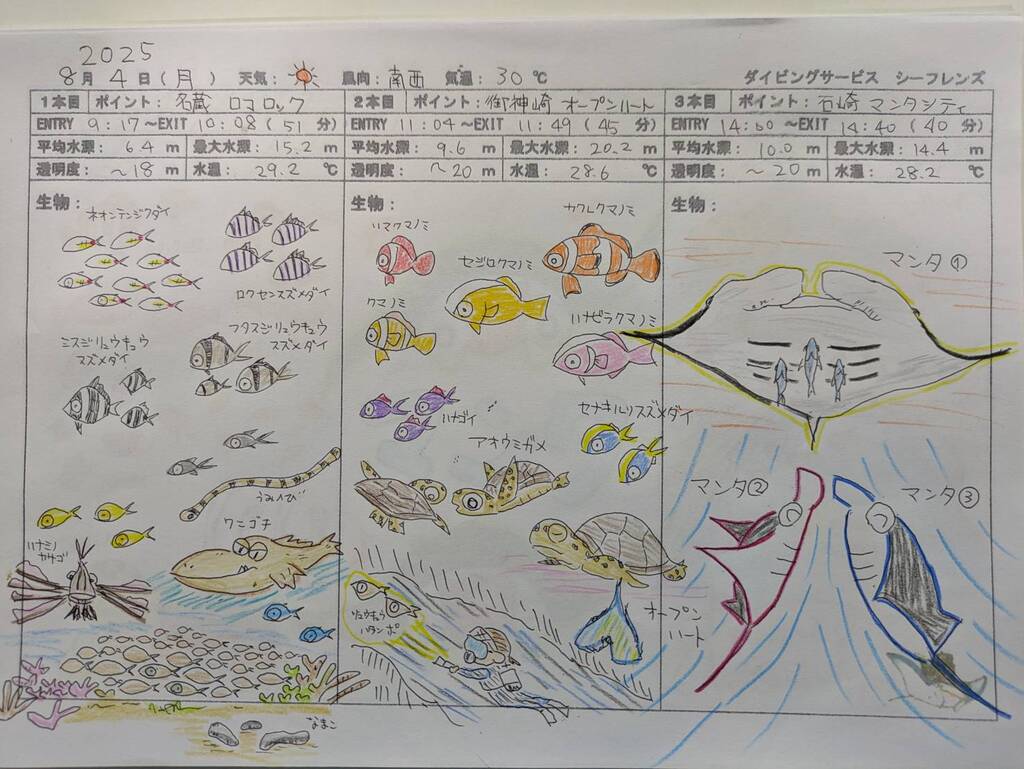 2025
8月 4日(月) 天気: 風向: 南西 気温: 30℃ ダイビングサービス シーフレンズ
1本目 ポイント: 名蔵 ロマロック
ENTRY 9:17~EXIT 10:08(51分)
平均水深: 6.4 m 最大水深: 15.2 m
透明度: ~18 m 水温: 29.2 ℃
生物:
ネオンテンジクダイ
ロクセンスズメダイ
フタスジリュウキュウ
スズメダイ
ミスジリュウキュウ
スズメダイ
うみへび
ワニゴチ
ハナミノ
カサゴ
なまこ
2本目 ポイント: 御神崎 オープンハート
ENTRY 11:04~EXIT 11:49(45分)
平均水深: 9.6 m 最大水深: 20.2 m
透明度: ~20 m 水温: 28.6 ℃
生物:
ハマクマノミ
カクレクマノミ
セジロクマノミ
クマノミ
ハナビラクマノミ
ハナゴイ
セナキルリスズメダイ
アオウミガメ
リュウキュウ
ハタンポ
オープン
ハート
3本目 ポイント: 石崎 マンタシティ
ENTRY 14:00~EXIT 14:40(40分)
平均水深: 10.0 m 最大水深: 14.4 m
透明度: ~20 m 水温: 28.2 ℃
生物:
マンタ①
マンタ②
マンタ③